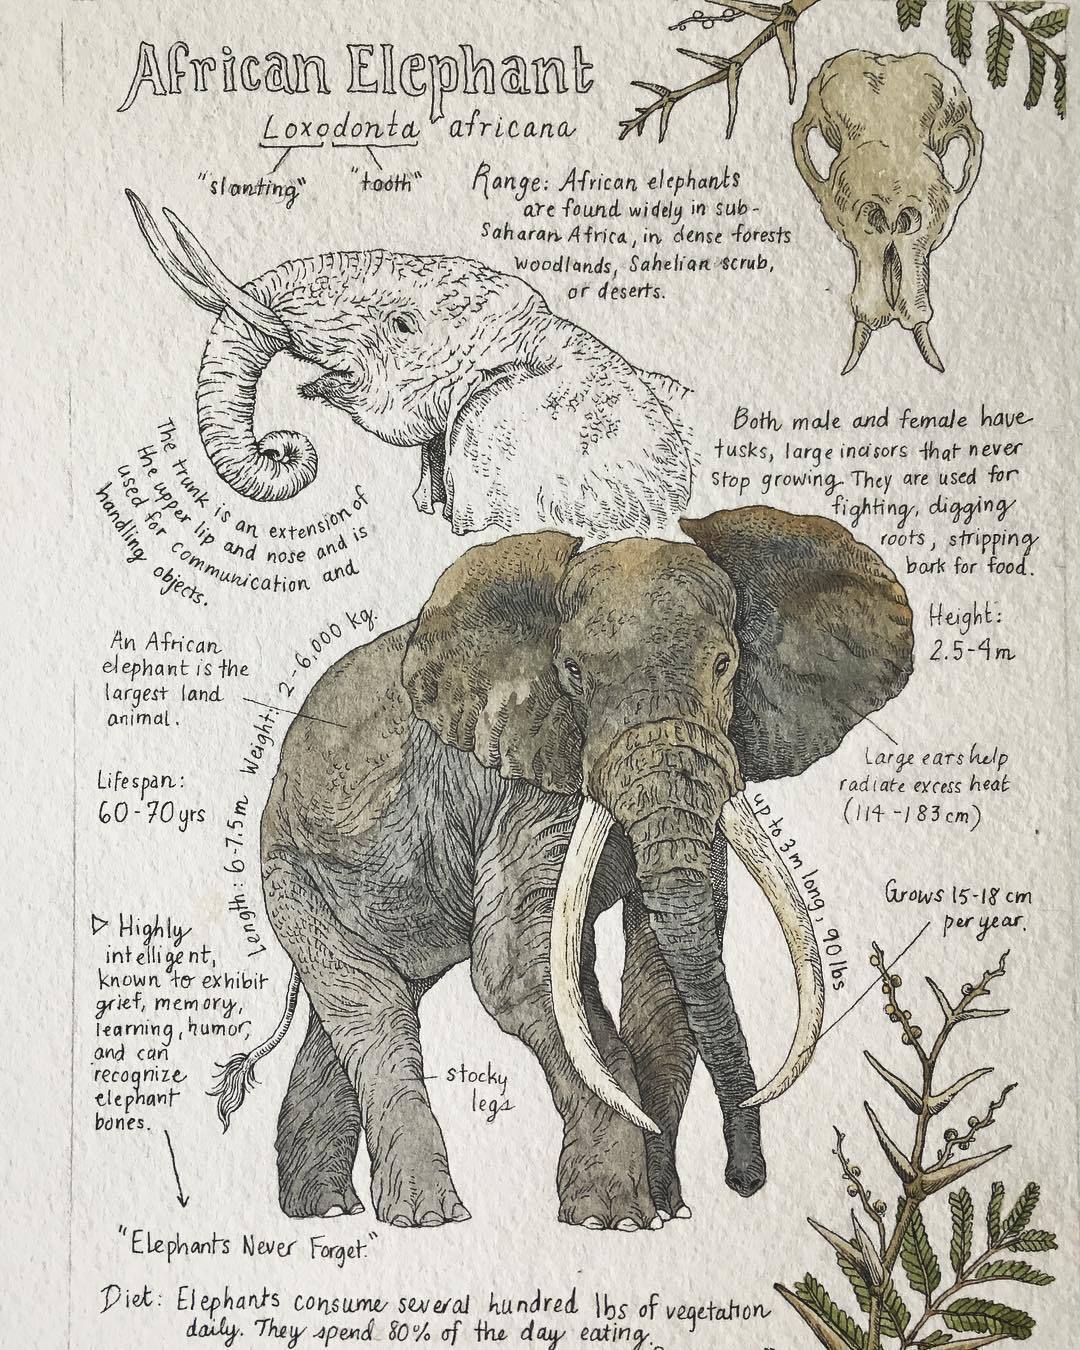 African Elephant
Loxodonta africana
"slanting" "tooth"
Range: African elephants
are found widely in sub-
Saharan Africa, in dense forests
woodlands, Sahelian scrub,
or deserts.
The trunk is an extension of
the upper lip and nose and is
used for communication and
handling objects.
Both male and female have
tusks, large incisors that never
stop growing. They are used for
fighting, digging
roots, stripping
bark for food.
Height:
2.5-4m
An African
elephant is the
largest land
animal.
Weight: 2-6,000 kg.
Length: 6-7.5m
Lifespan:
60-70yrs
Large ears help
radiate excess heat
(114-183cm)
up to 3m long, 90lbs
Grows 15-18 cm
per year.
Highly
intelligent,
known to exhibit
grief, memory,
learning, humor,
and can
recognize
elephant
bones.
stocky
legs
"Elephants Never Forget."
Diet: Elephants consume several hundred lbs of vegetation
daily. They spend 80% of the day eating.